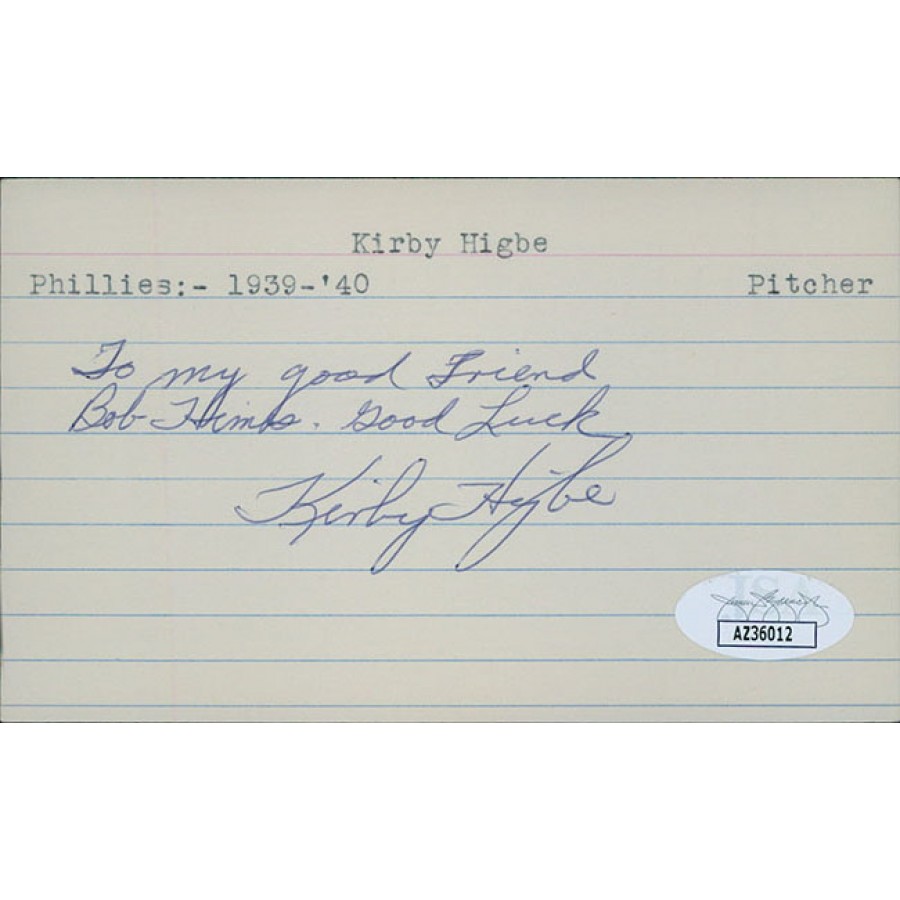 Kirby Higbe
Phillies:- 1939-'40
Pitcher
To my good Friend
Bob Good Luck
Kirby Higbe
JSA
AZ36012